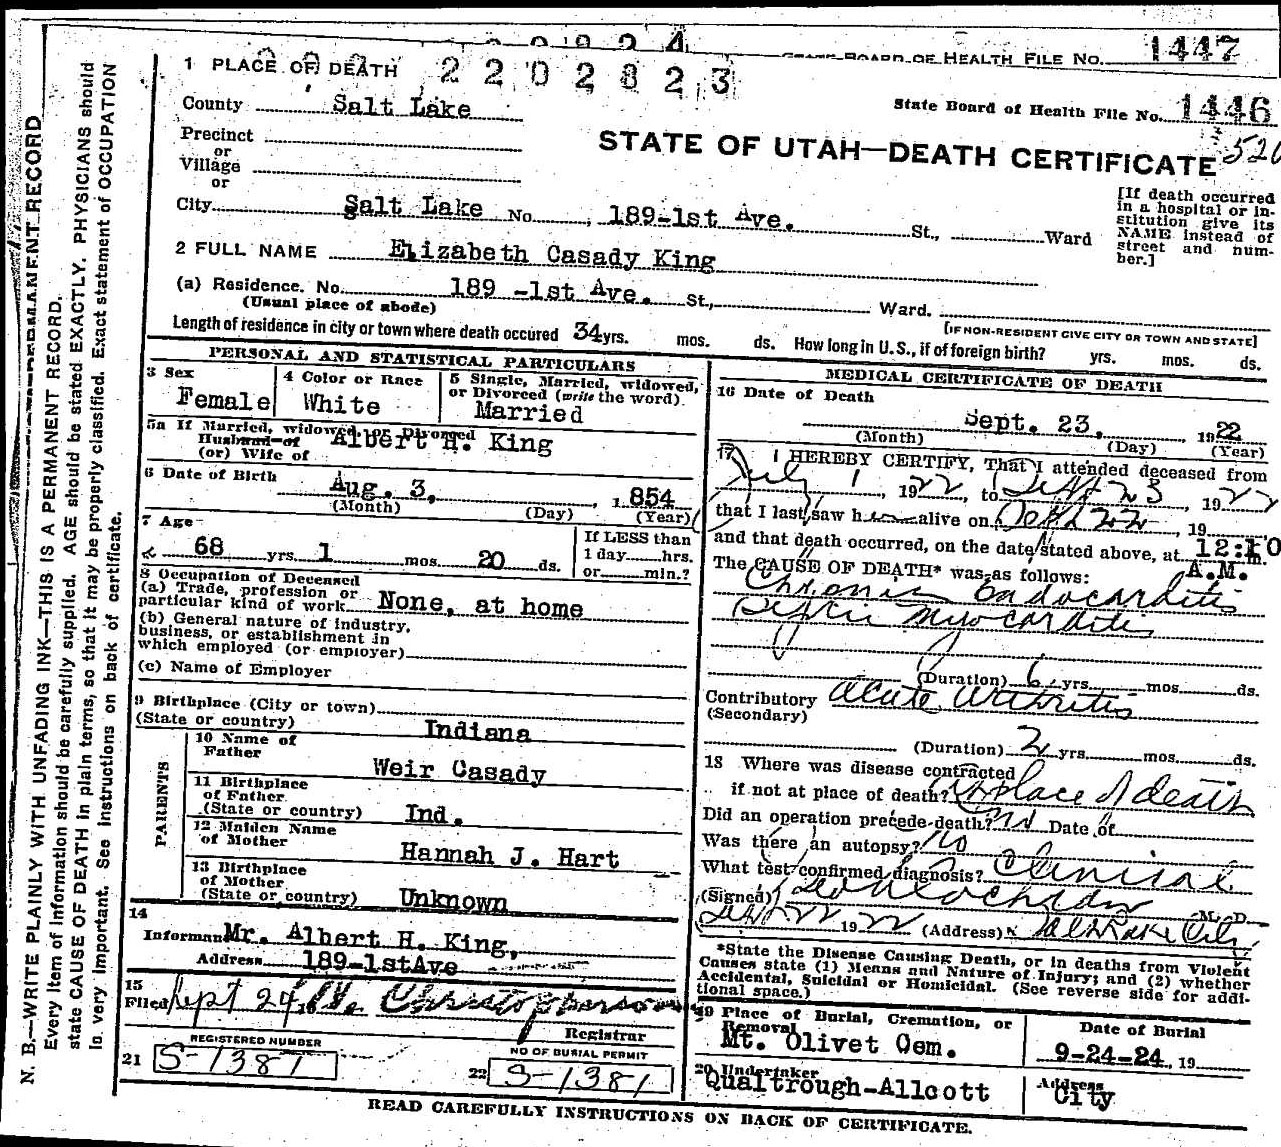 1447
STATE BOARD OF HEALTH FILE NO.
1 PLACE OF DEATH 2202823
State Board of Health File No. 1446
County Salt Lake
STATE OF UTAH—DEATH CERTIFICATE
Precinct
or
Village
or
City Salt Lake No. 189-1st Ave. St., Ward
[If death occurred
in a hospital or in-
stitution give its
NAME instead of
street and num-
ber.]
2 FULL NAME Elizabeth Casady King
(a) Residence. No. 189 -1st Ave. St., Ward.
(Usual place of abode)
[IF NON-RESIDENT GIVE CITY OR TOWN AND STATE]
Length of residence in city or town where death occured 34 yrs. mos. ds. How long in U. S., if of foreign birth? yrs. mos. ds.
PERSONAL AND STATISTICAL PARTICULARS
3 Sex
Female
4 Color or Race
White
5 Single, Married, widowed,
or Divorced (write the word)
Married
5a If Married, widowed or Divorced
Husband of
(or) Wife of
Albert H. King
6 Date of Birth
Aug. 3, 1854
(Month) (Day) (Year)
7 Age
68 yrs. 1 mos. 20 ds.
If LESS than
1 day hrs.
or min.?
8 Occupation of Deceased
(a) Trade, profession or
particular kind of work None, at home
(b) General nature of industry,
business, or establishment in
which employed (or employer)
(c) Name of Employer
9 Birthplace (City or town)
(State or country) Indiana
PARENTS
10 Name of
Father
Weir Casady
11 Birthplace
of Father
(State or country) Ind.
12 Maiden Name
of Mother
Hannah J. Hart
13 Birthplace
of Mother
(State or country) Unknown
14
Informant Mr. Albert H. King,
Address 189-1stAve
15
Filed Sept 24
Registrar
REGISTERED NUMBER
21 S-1381
NO OF BURIAL PERMIT
22 S-1381
MEDICAL CERTIFICATE OF DEATH
16 Date of Death
Sept. 23, 1922
(Month) (Day) (Year)
17 I HEREBY CERTIFY, That I attended deceased from
July 1, 1922, to Sept 23, 1922
that I last saw her alive on Sept 22, 19
and that death occurred, on the date stated above, at 12:10 m.
A.M.
The CAUSE OF DEATH* was as follows:
Chronic Endocarditis
Septic Myocarditis
(Duration) 6 yrs. mos. ds.
Contributory Acute Arthritis
(Secondary)
(Duration) 2 yrs. mos. ds.
18 Where was disease contracted
if not at place of death? At place of death
Did an operation precede death? no Date of
Was there an autopsy? No
What test confirmed diagnosis? Clinical
(Signed) M. D.
Sept 22 1922 (Address) Salt Lake City
*State the Disease Causing Death, or in deaths from Violent
Causes state (1) Means and Nature of Injury; and (2) whether
Accidental, Suicidal or Homicidal. (See reverse side for addi-
tional space.)
19 Place of Burial, Cremation, or
Removal
Mt. Olivet Cem.
Date of Burial
9-24-24, 19
20 Undertaker
Qualtrough-Allcott
Address
City
READ CAREFULLY INSTRUCTIONS ON BACK OF CERTIFICATE.
N. B.—WRITE PLAINLY WITH UNFADING INK—THIS IS A PERMANENT RECORD.
Every item of information should be carefully supplied. AGE should be stated EXACTLY. PHYSICIANS should
state CAUSE OF DEATH in plain terms, so that it may be properly classified. Exact statement of OCCUPATION
is very important. See instructions on back of certificate.